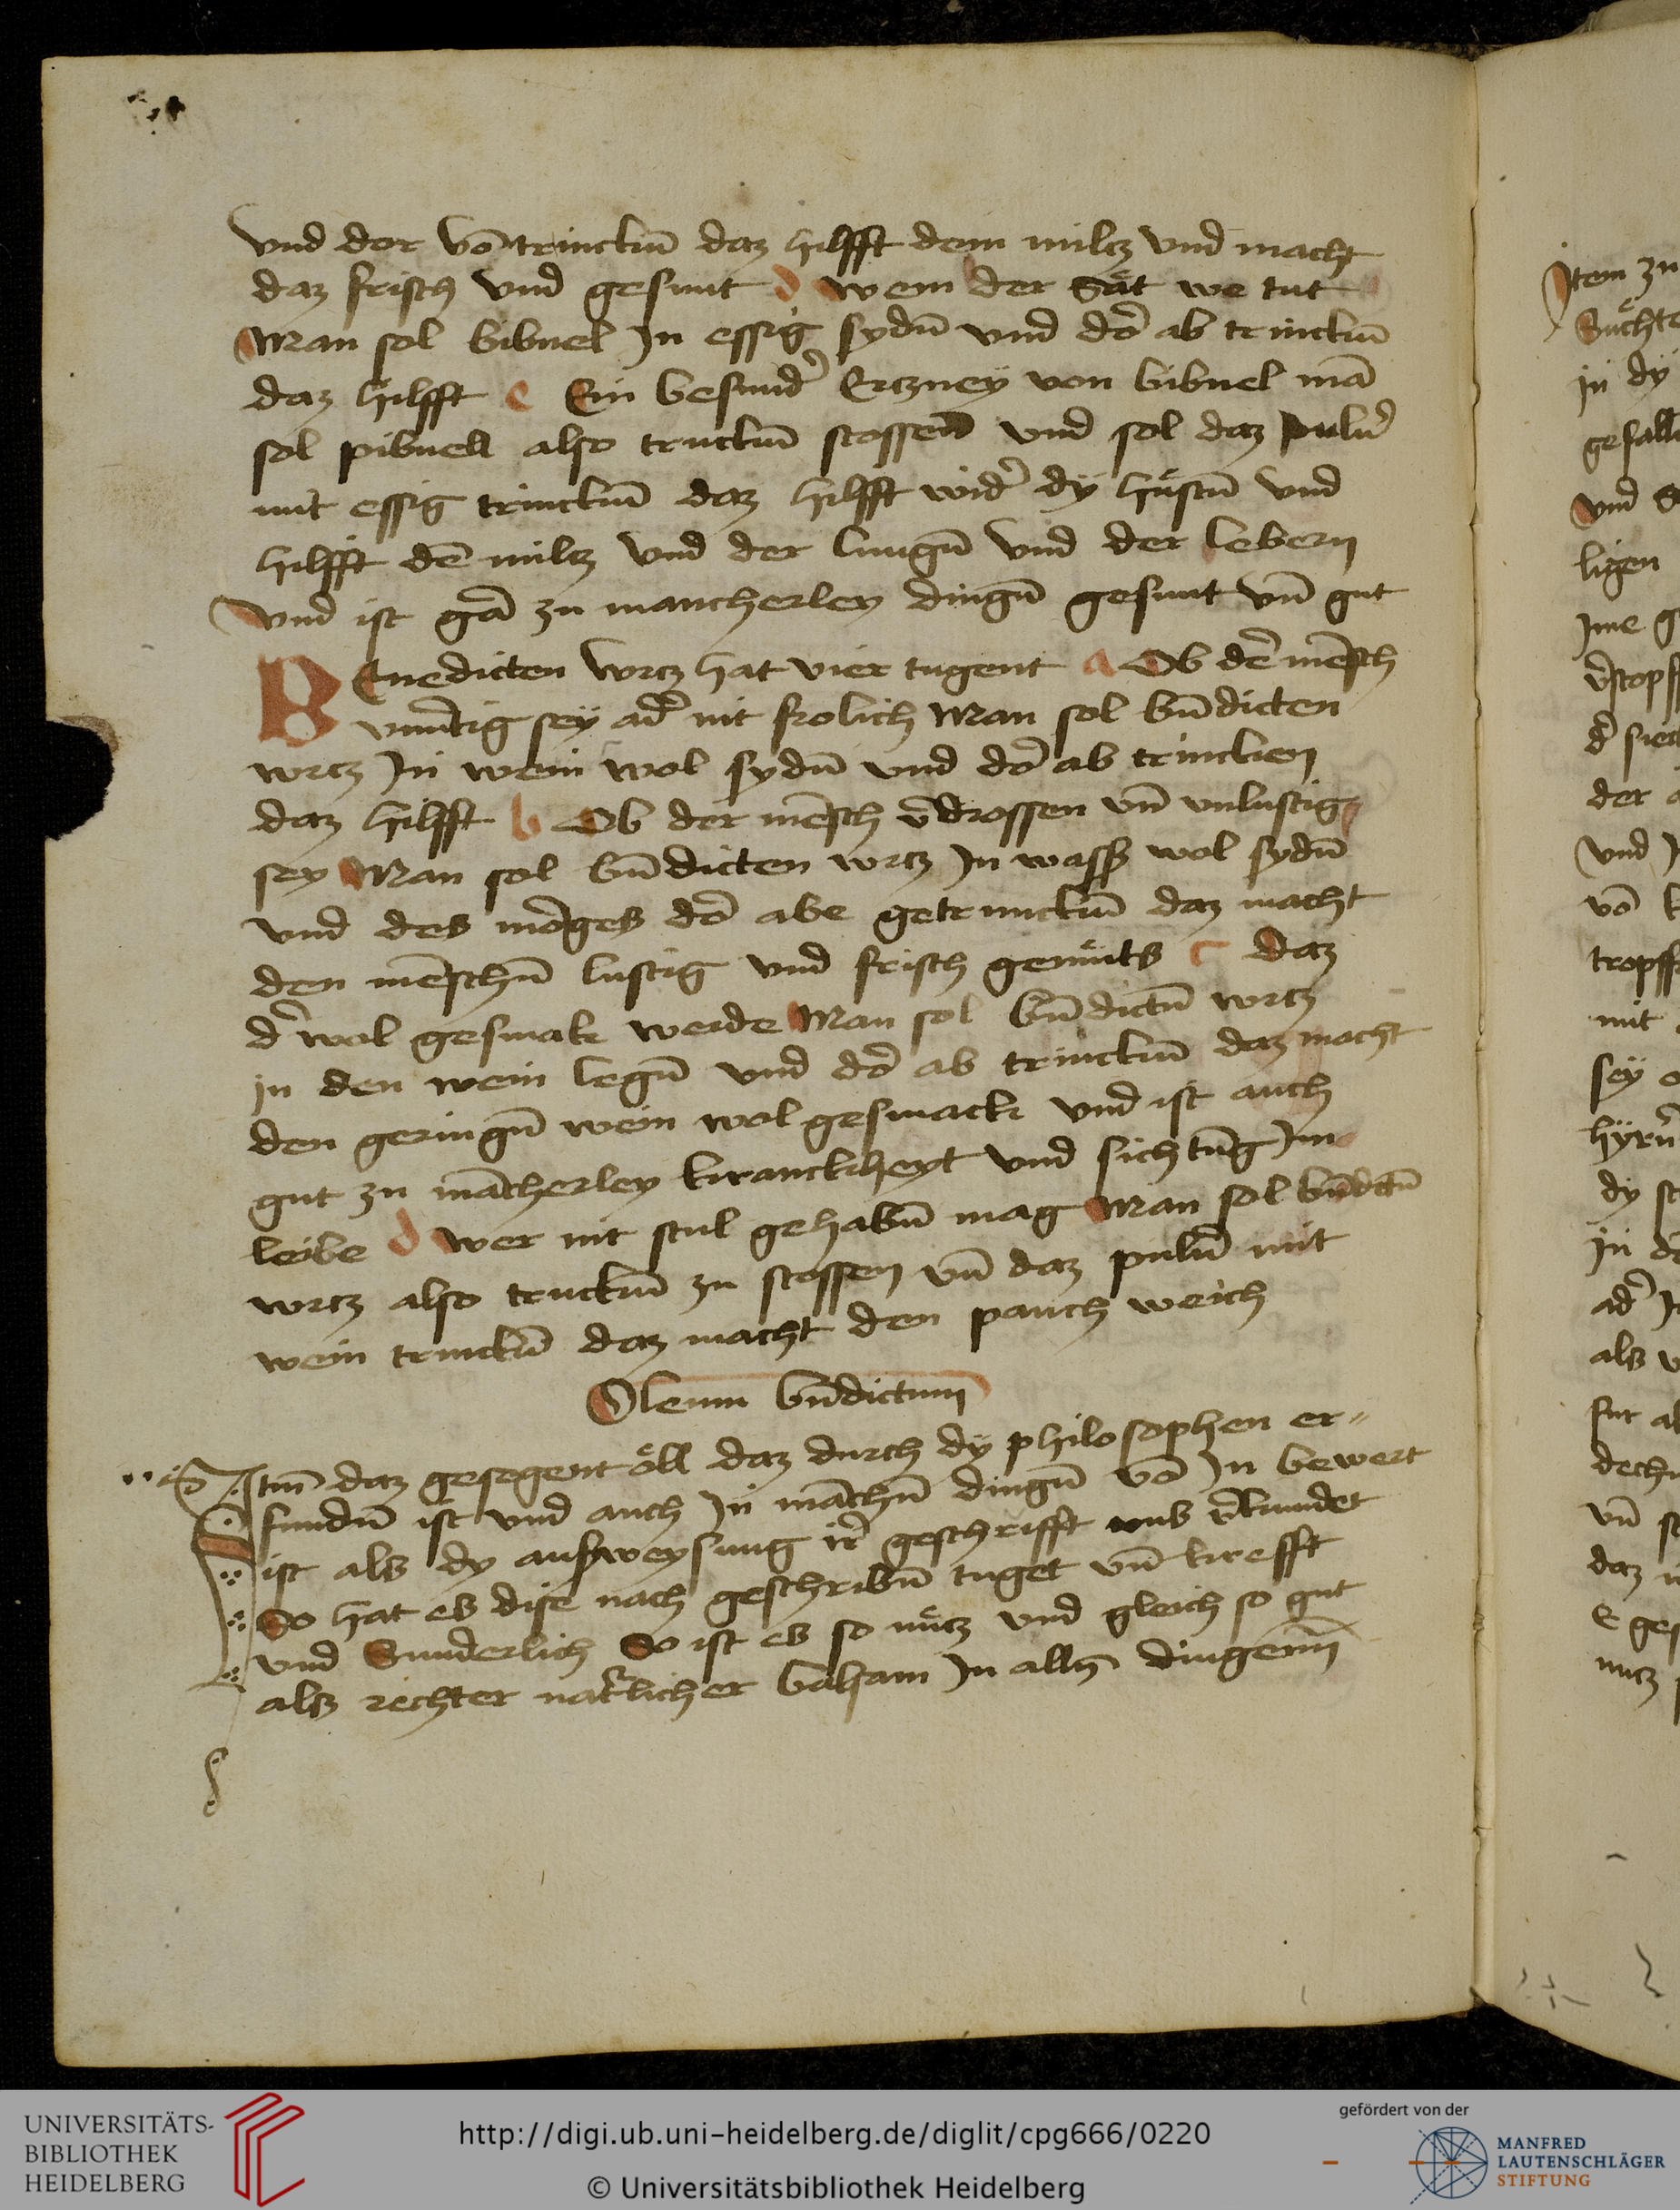 vnd der võ trincktñ daz hilfft dem milcz vnd macht
daz frisch vnd gesunt d wem der Sat we tut
Man sol bibnel Jn essig sydñ vnd do᷑ ab trincktñ
daz hilfft e Ein besund᷑ Erczney von bibnel mã
sol pibnell also trucktñ stossen vnd sol daz pulũ
mit essig trincktñ daz hilfft wid᷑ dÿ hustñ vnd
hilfft dẽ milcz vnd der lungñ vnd der lebern
vnd ist gã zu mancherley dingñ gesunt vñ gut
BEnedicten wrcz hat vier tugent a Ob dẽ mẽsch
vnmtig seÿ ad᷑ nit frolich Man sol bñdicten
wrcz Jn wein wol sydñ vnd do᷑ ab trincken
daz hilfft b Ob der mẽsch v᷑drossen vñ vnlustig
sey Man sol bñdicten wrcz Jn wass᷑ wol sydñ
vnd des mo᷑ges do᷑ abe getrincktñ daz macht
den mẽschñ lustig vnd frisch gemuts c daz
d᷑ wol gesmak werde Man sol bñdictñ wrcz
in den wein legñ vnd do᷑ ab trincktñ daz macht
den geringñ wein wol gesmack vnd ist auch
gut zu mãcherley kranckheyt vnd sichtũg Jm
leibe d Wer nit stul gehabñ mag Man sol bñdictñ
wrcz also trucktñ zu stossen vñ daz pulũ mit
wein trincktñ daz macht den pauch weich
Oleum bñdictum
Jtm̃ daz gesegent öll daz durch dÿ philosophen er〃
fundñ ist vnd auch Jn mãchñ dingñ võ Jn bewert
ist als dy ausweysung ir᷑ geschrifft vns v᷑kundet
So hat es dise nach geschribñ tuget vñ krefft
vnd Sunderlich So ist es so nucz vnd gleich so gut
als rechter nat᷑licher balsam Jn alln̄ dingenn̄
Jtem zu
Suchte
in dÿ
gefall
vnd
ligen
Jme
v᷑stopf
d᷑ siec
der
vnd
võ
tropff
mit
sey
hÿrñ
dÿ
Jn
ad᷑
als
fur
dech
vñ
daz
e ges
nucz
UNIVERSITÄTS-
BIBLIOTHEK
HEIDELBERG
http://digi.ub.uni-heidelberg.de/diglit/cpg666/0220
© Universitätsbibliothek Heidelberg
gefördert von der
MANFRED
LAUTENSCHLÄGER
STIFTUNG